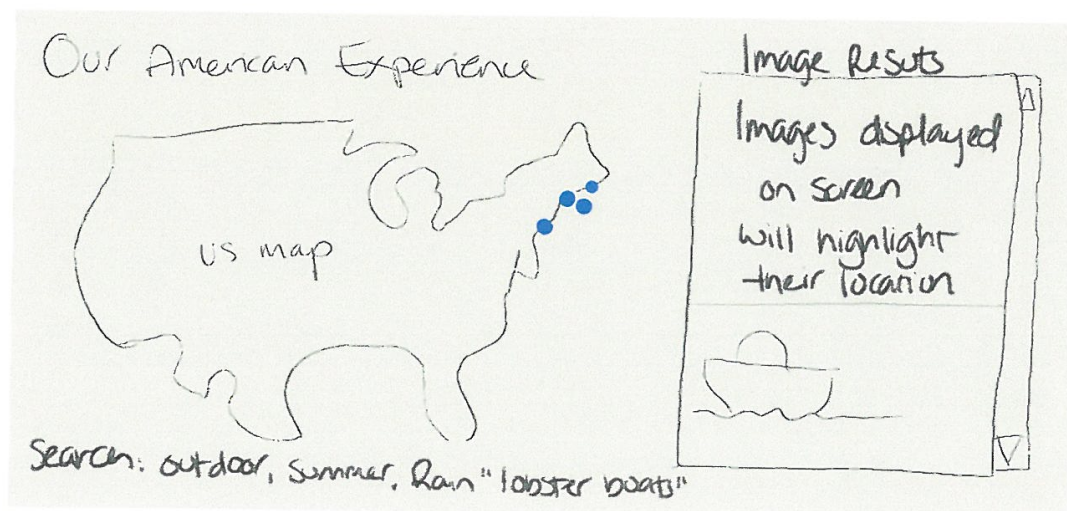 Our American Experience
us map
Search: outdoor, Summer, Rain "lobster boats"
Image Resuts
Images displayed
on screen
will highlight
their location